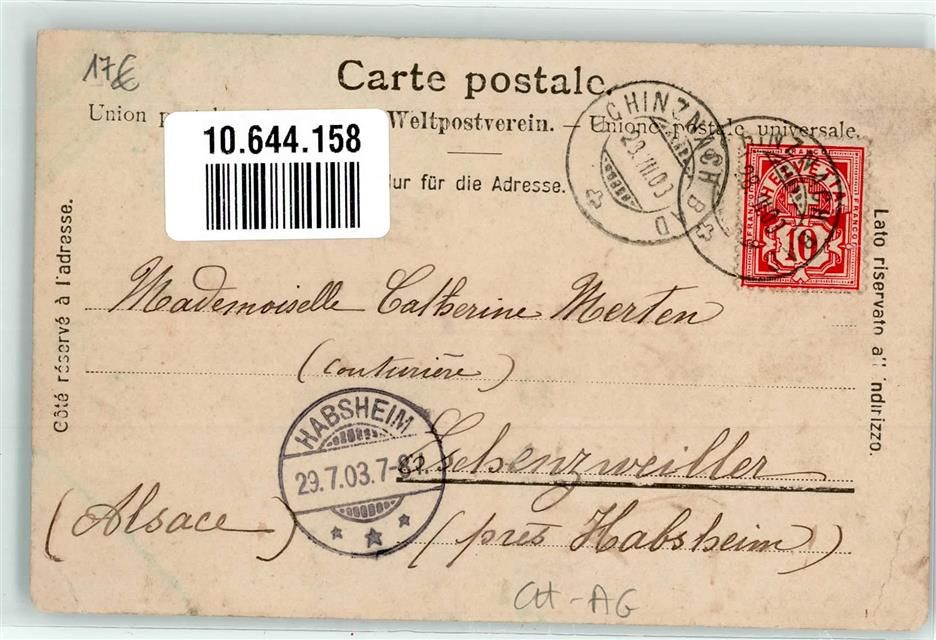 17€
Carte postale.
Union Weltpostverein. — Unione postale universale.
10.644.158
Nur für die Adresse.
Côté réservé à l'adresse.
Lato riservato all'indirizzo.
SCHINZNACH BAD
28.VII.03
SCHINZNACH BAD
FRANCO HELVETIA FRANCO
10
Mademoiselle Catherine Merten
(couturière)
HABSHEIM
29.7.03.7-8V.
Eschenzweiller
(Alsace) (près Habsheim)
CH-AG